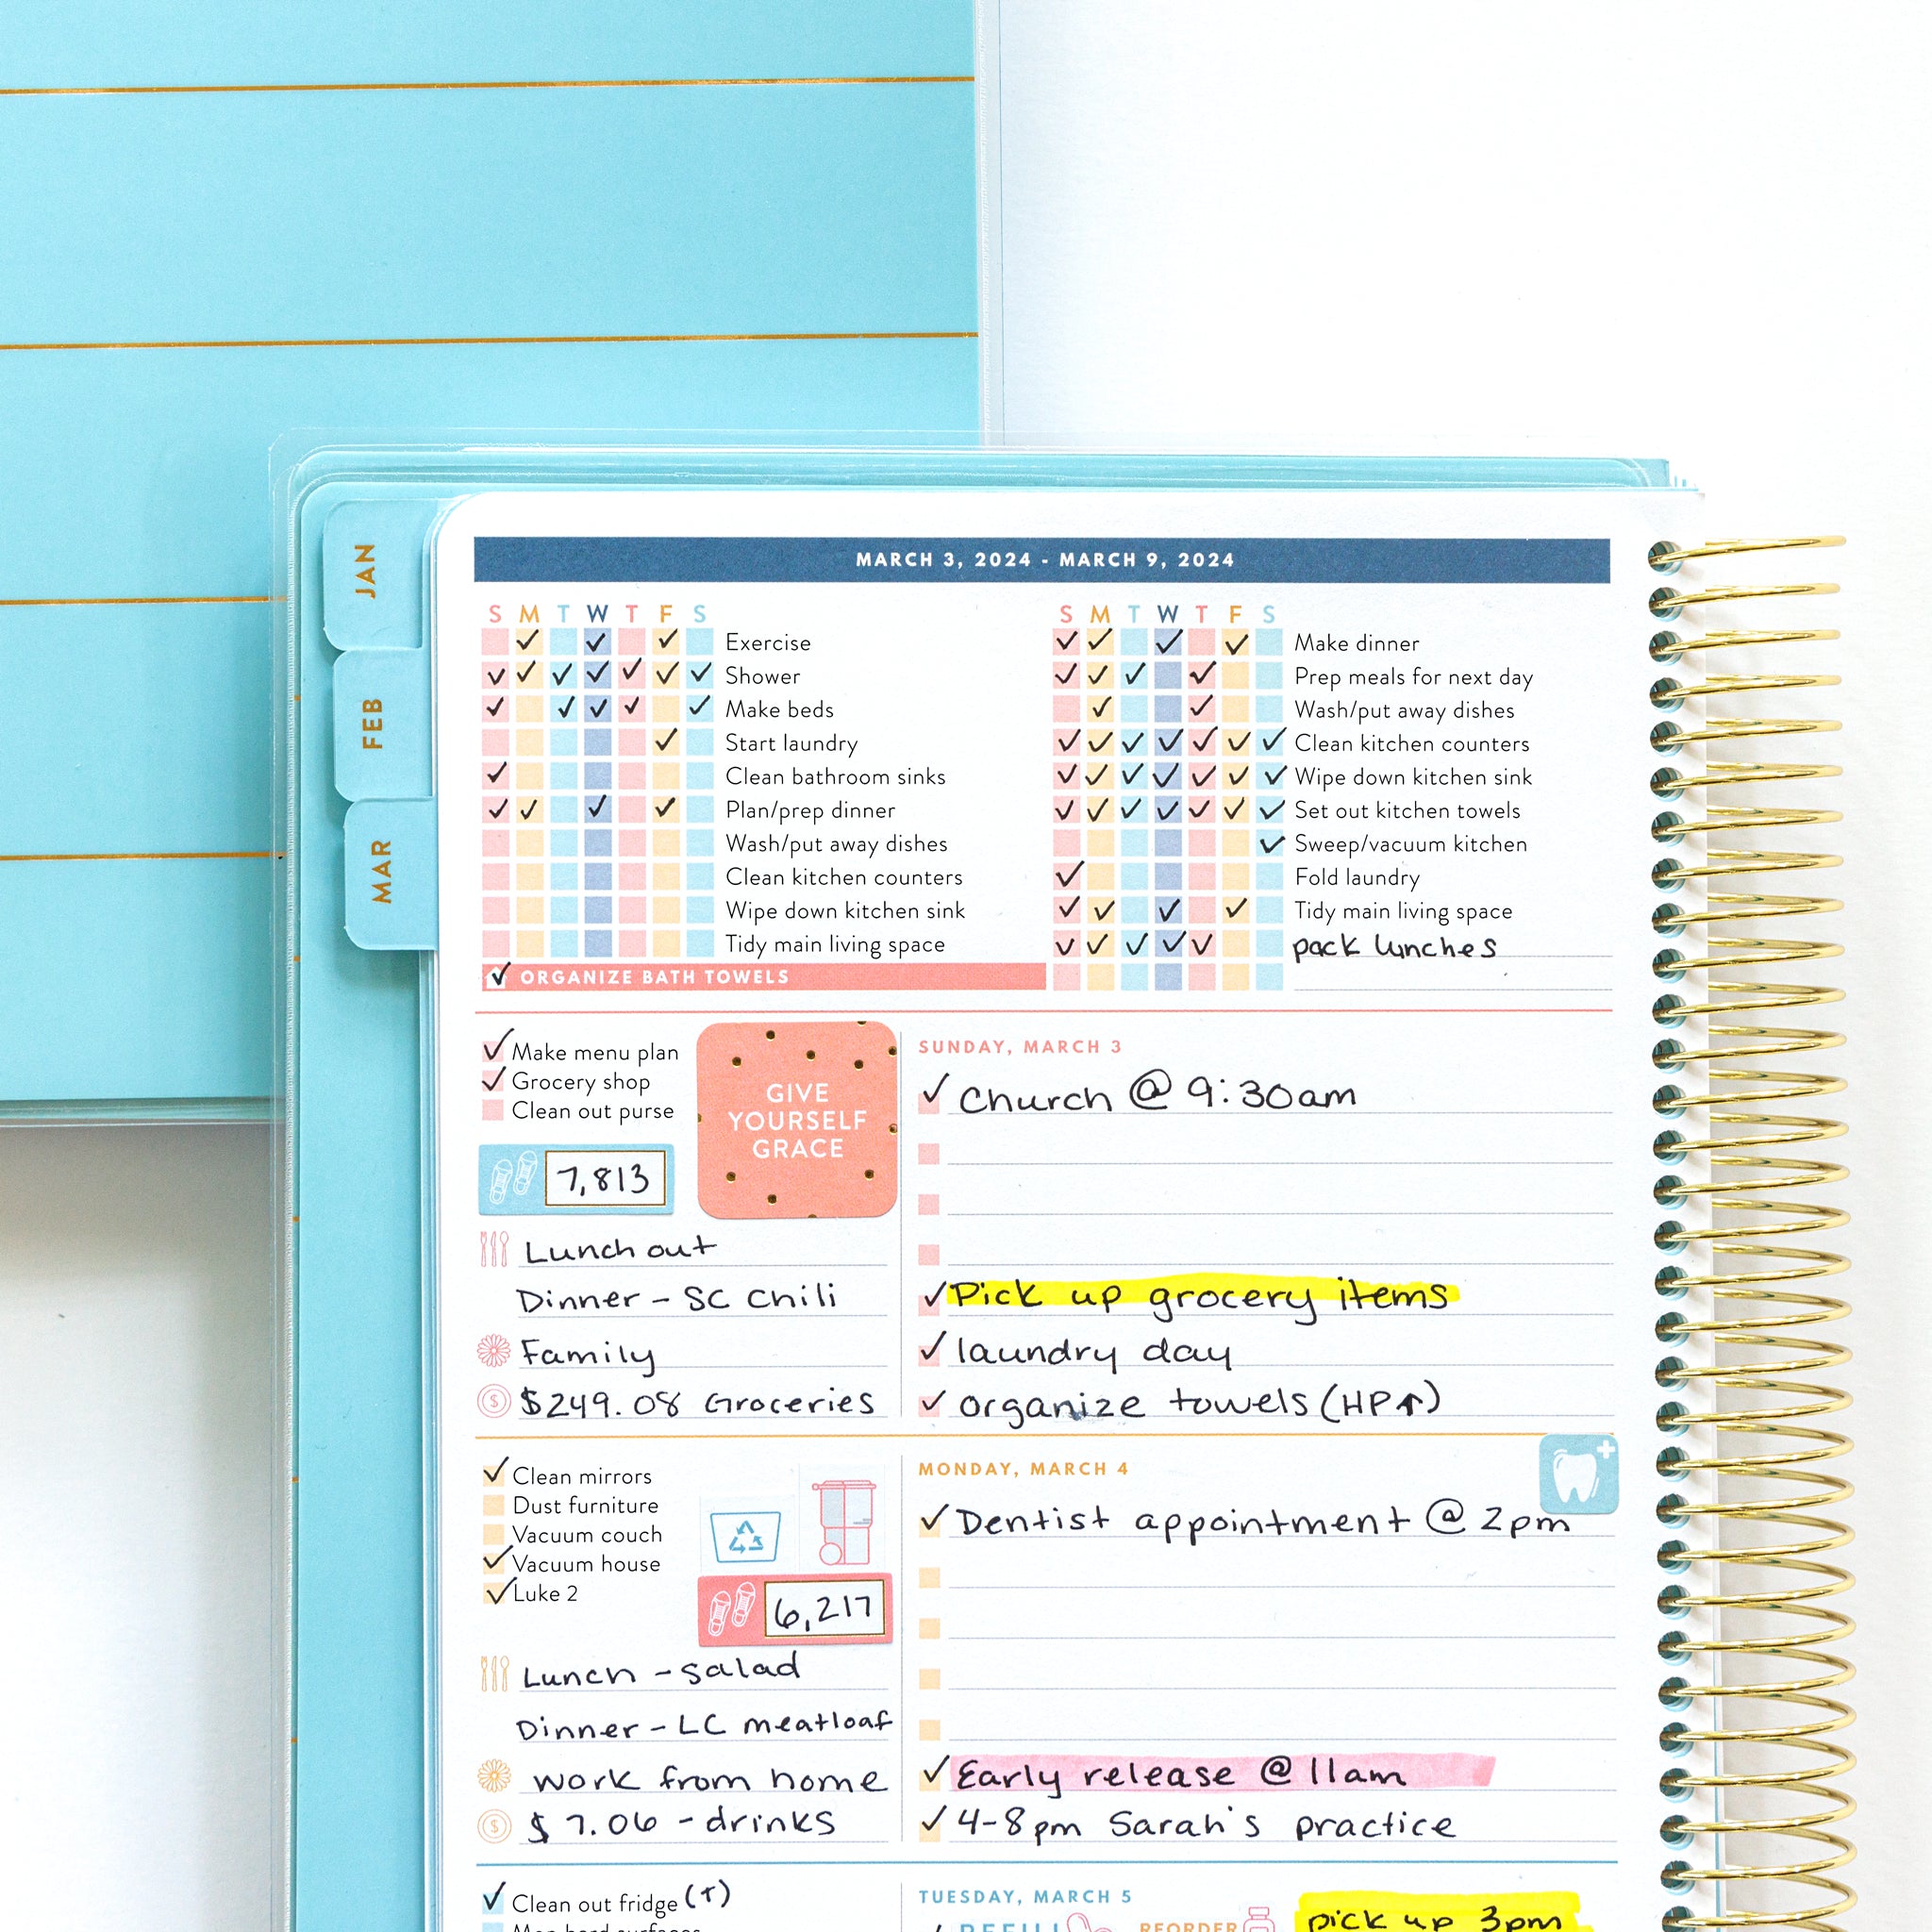 JAN
FEB
MAR
MARCH 3, 2024 - MARCH 9, 2024
S M T W T F S
Exercise
Shower
Make beds
Start laundry
Clean bathroom sinks
Plan/prep dinner
Wash/put away dishes
Clean kitchen counters
Wipe down kitchen sink
Tidy main living space
ORGANIZE BATH TOWELS
S M T W T F S
Make dinner
Prep meals for next day
Wash/put away dishes
Clean kitchen counters
Wipe down kitchen sink
Set out kitchen towels
Sweep/vacuum kitchen
Fold laundry
Tidy main living space
pack lunches
Make menu plan
Grocery shop
Clean out purse
GIVE
YOURSELF
GRACE
7,813
Lunch out
Dinner - SC Chili
Family
$249.08 Groceries
SUNDAY, MARCH 3
Church @ 9:30am
Pick up grocery items
laundry day
organize towels (HP↑)
Clean mirrors
Dust furniture
Vacuum couch
Vacuum house
Luke 2
6,217
Lunch - salad
Dinner - LC meatloaf
work from home
$7.06 - drinks
MONDAY, MARCH 4
Dentist appointment @ 2pm
Early release @ 11am
4-8pm Sarah's practice
Clean out fridge (T)
Mop hard surfaces
TUESDAY, MARCH 5
REFILL
REORDER
pick up 3pm